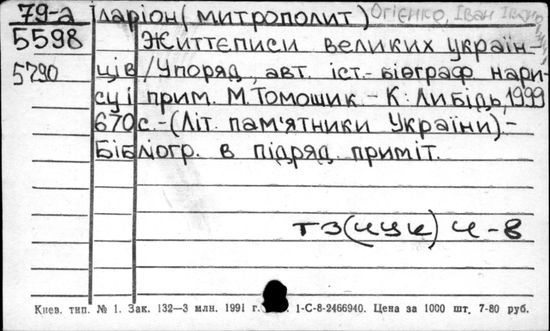 79-а Іларіон (митрополит) Огієнко, Іван Іван
5598 Життєписи великих україн-
5790 ців/Упоряд, авт. іст.-біограф нари
су і прим. М. Томощик.- К: Либідь, 1999
670с.-(Літ. пам'ятники України).-
Бібліогр. в підряд. приміт.
ТЗ(ЧЦК) Ч-8
Киев. тип. № 1. Зак. 132—3 млн. 1991 г. 1-С-8-2466940. Цена за 1000 шт. 7-80 руб.